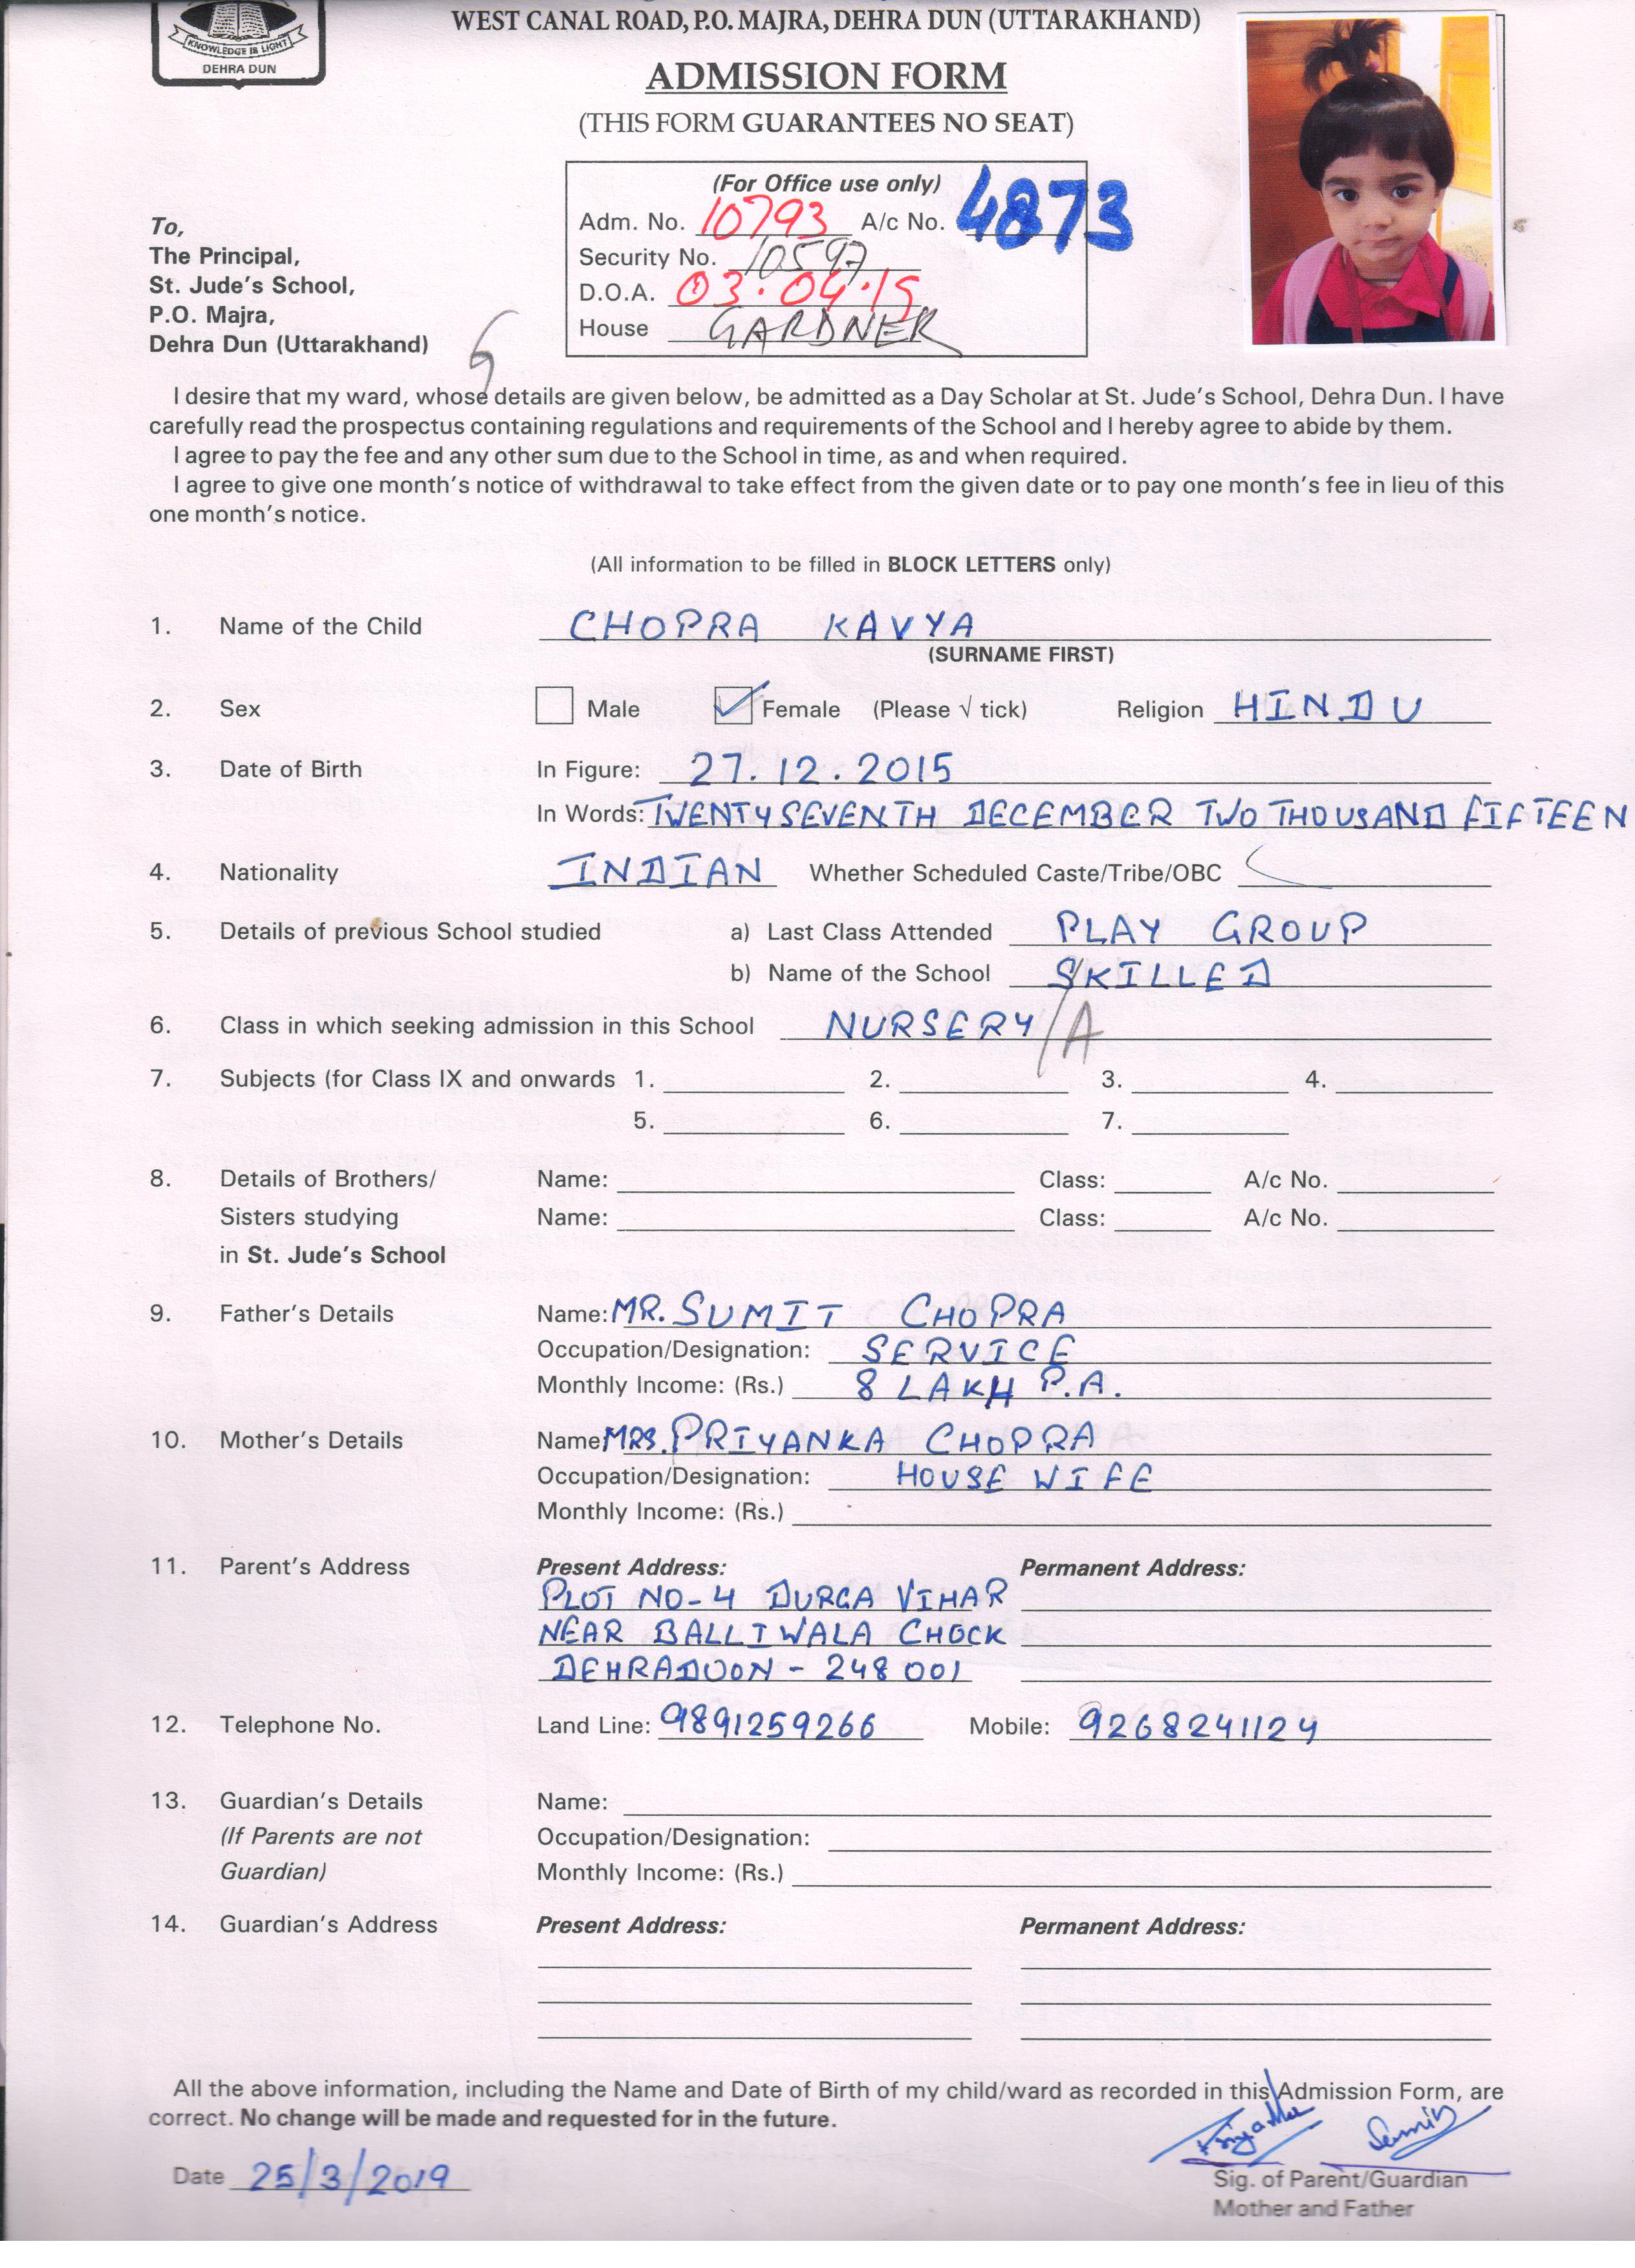 KNOWLEDGE IS LIGHT
DEHRA DUN
WEST CANAL ROAD, P.O. MAJRA, DEHRA DUN (UTTARAKHAND)
ADMISSION FORM
(THIS FORM GUARANTEES NO SEAT)
(For Office use only)
Adm. No. 10793 A/c No. 4873
Security No. 10597
D.O.A. 03.04.19
House GARDNER
To,
The Principal,
St. Jude's School,
P.O. Majra,
Dehra Dun (Uttarakhand)
I desire that my ward, whose details are given below, be admitted as a Day Scholar at St. Jude's School, Dehra Dun. I have
carefully read the prospectus containing regulations and requirements of the School and I hereby agree to abide by them.
I agree to pay the fee and any other sum due to the School in time, as and when required.
I agree to give one month's notice of withdrawal to take effect from the given date or to pay one month's fee in lieu of this
one month's notice.
(All information to be filled in BLOCK LETTERS only)
1. Name of the Child CHOPRA KAVYA
(SURNAME FIRST)
2. Sex Male Female (Please √ tick) Religion HINDU
3. Date of Birth In Figure: 27.12.2015
In Words: TWENTY SEVENTH DECEMBER TWO THOUSAND FIFTEEN
4. Nationality INDIAN Whether Scheduled Caste/Tribe/OBC
5. Details of previous School studied a) Last Class Attended PLAY GROUP
b) Name of the School SKILLED
6. Class in which seeking admission in this School NURSERY/A
7. Subjects (for Class IX and onwards 1. 2. 3. 4.
5. 6. 7.
8. Details of Brothers/ Name: Class: A/c No.
Sisters studying Name: Class: A/c No.
in St. Jude's School
9. Father's Details Name: MR. SUMIT CHOPRA
Occupation/Designation: SERVICE
Monthly Income: (Rs.) 8 LAKH P.A.
10. Mother's Details Name MRS. PRIYANKA CHOPRA
Occupation/Designation: HOUSE WIFE
Monthly Income: (Rs.)
11. Parent's Address Present Address: Permanent Address:
PLOT NO-4 DURGA VIHAR
NEAR BALLIWALA CHOCK
DEHRADOON - 248 001
12. Telephone No. Land Line: 9891259266 Mobile: 9268241124
13. Guardian's Details Name:
(If Parents are not Occupation/Designation:
Guardian) Monthly Income: (Rs.)
14. Guardian's Address Present Address: Permanent Address:
All the above information, including the Name and Date of Birth of my child/ward as recorded in this Admission Form, are
correct. No change will be made and requested for in the future.
Date 25/3/2019
Sig. of Parent/Guardian
Mother and Father